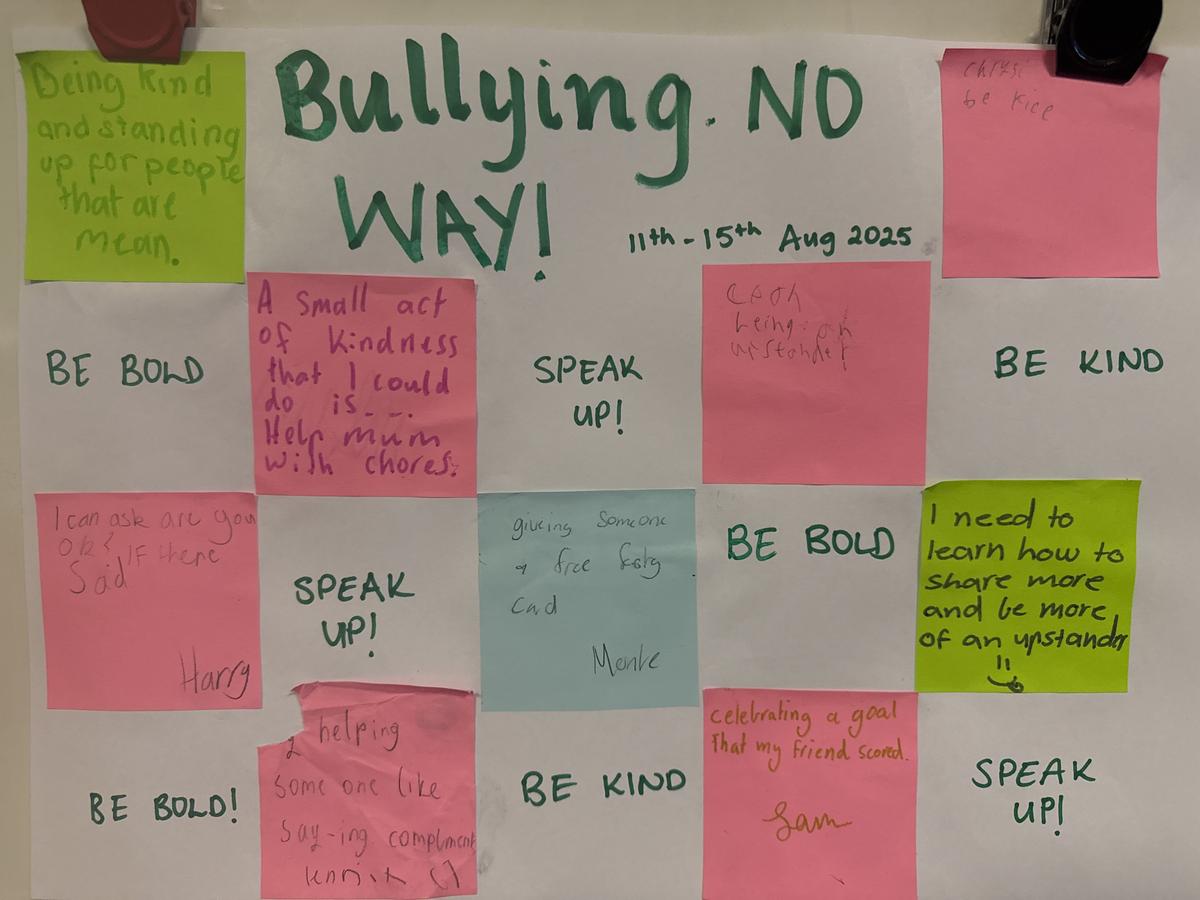 Being kind
and standing
up for people
that are
mean.
Bullying. NO
WAY!
11th - 15th Aug 2025
be
BE BOLD
A small act
of kindness
that I could
do is...
Help mum
with chores.
SPEAK
UP!
being an
upstander
BE KIND
I can ask are you
ok? IF there
Sad
Harry
SPEAK
UP!
giving Someone
a free
Monte
BE BOLD
I need to
learn how to
share more
and be more
of an upstander
BE BOLD!
helping
some one like
say-ing compliment
BE KIND
celebrating a goal
that my friend scored.
Sam
SPEAK
UP!